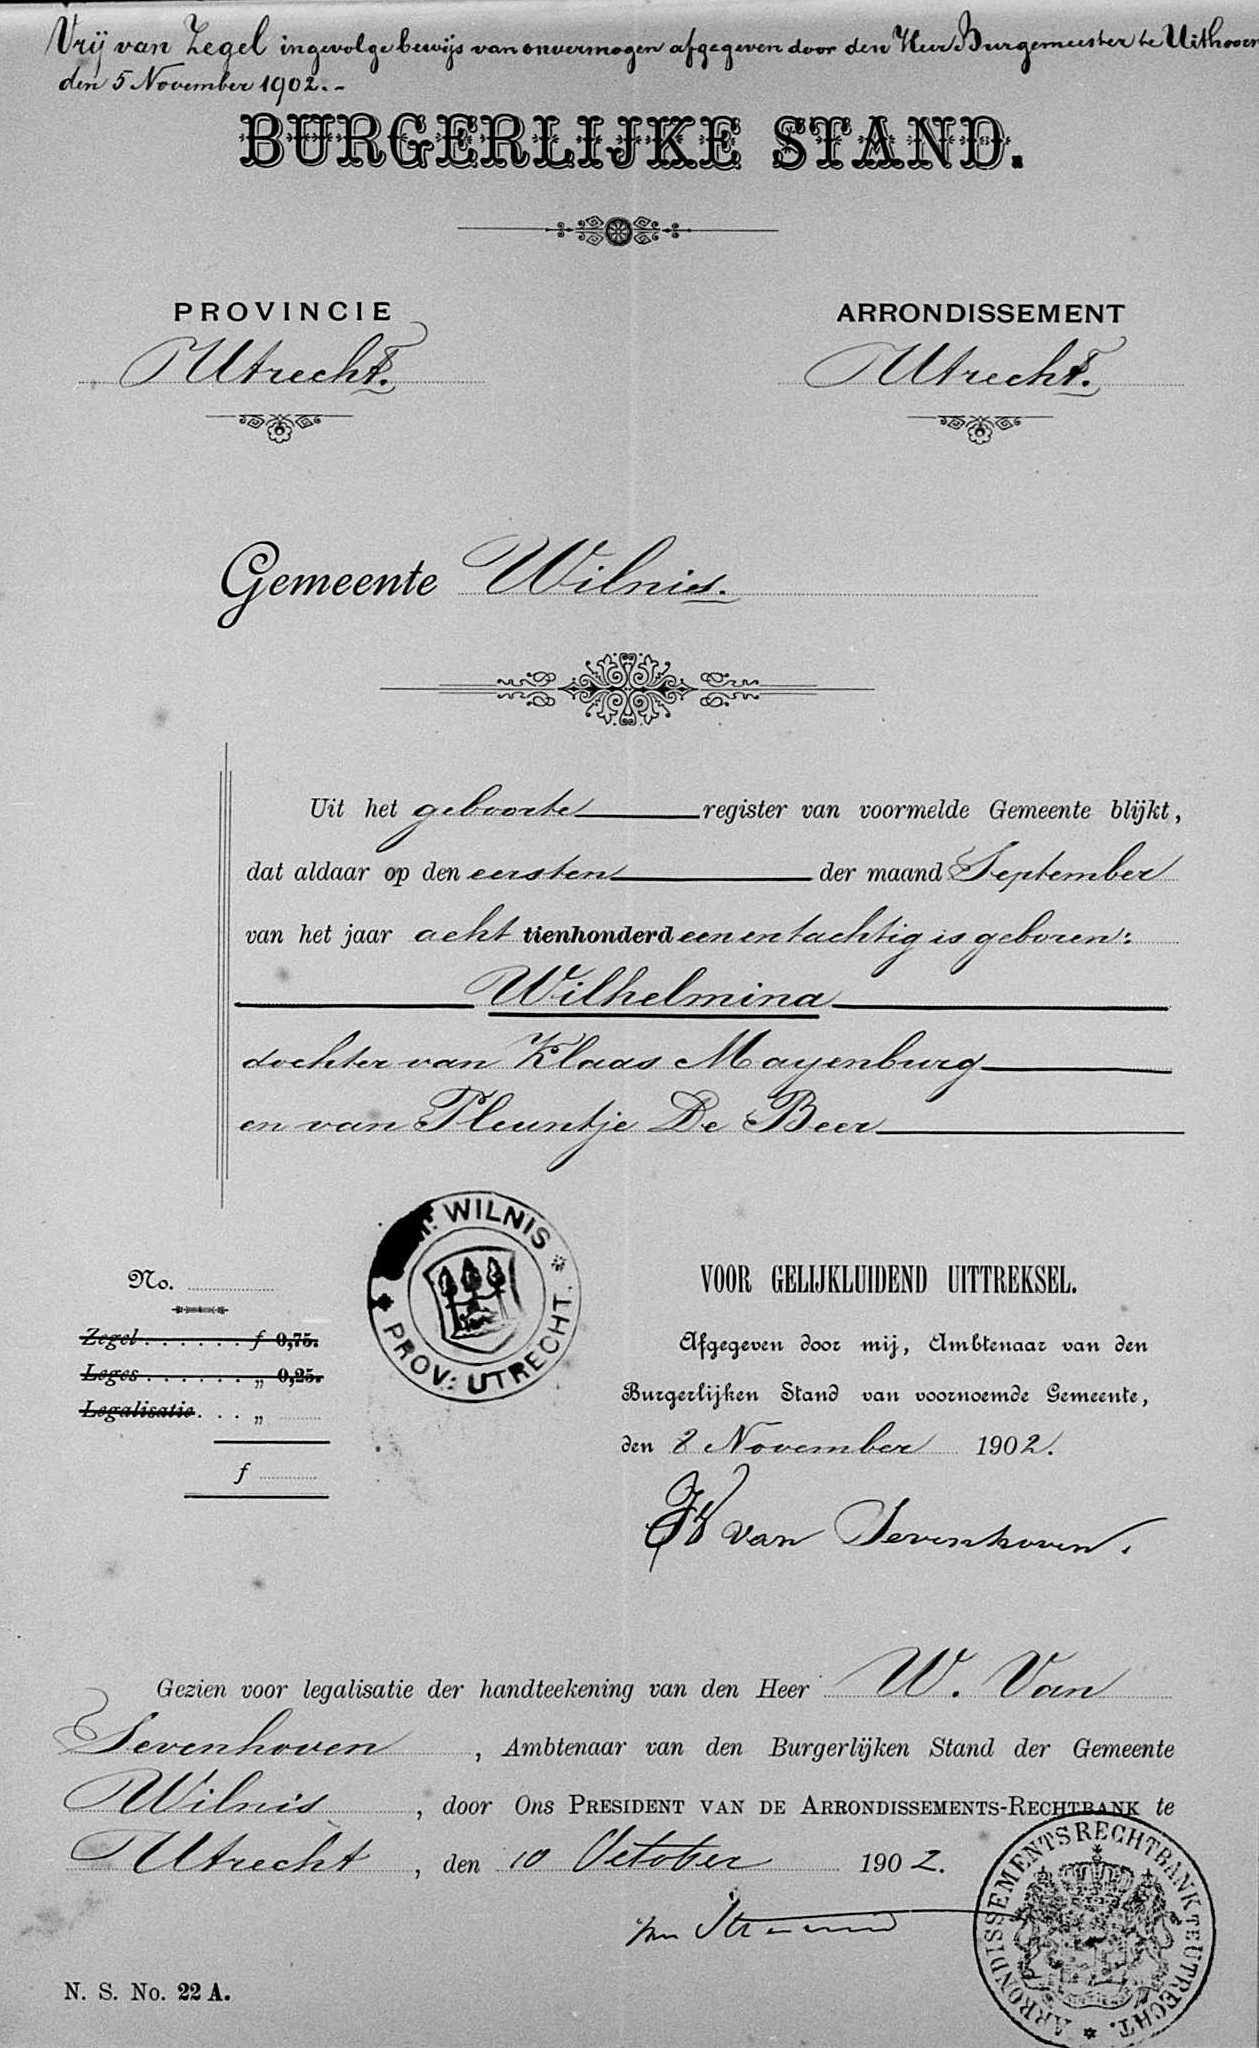 Vrij van Zegel ingevolge bewijs van onvermogen afgegeven door den Heer Burgemeester te Uithoorn
den 5 November 1902.-
BURGERLIJKE STAND.
PROVINCIE
Utrecht.
ARRONDISSEMENT
Utrecht.
Gemeente Wilnis.
Uit het geboorte register van voormelde Gemeente blijkt,
dat aldaar op den eersten der maand September
van het jaar acht tienhonderd een en tachtig is geboren:
Wilhelmina
dochter van Klaas Mayenburg
en van Pleuntje De Beer
WILNIS
PROV: UTRECHT.
No.
Zegel . . . . . . f 0,75.
Leges . . . . . . „ 0,25.
Legalisatie . . . „
f
VOOR GELIJKLUIDEND UITTREKSEL.
Afgegeven door mij, Ambtenaar van den
Burgerlijken Stand van voornoemde Gemeente,
den 8 November 1902.
van Sevenhoven.
Gezien voor legalisatie der handteekening van den Heer W. Van
Sevenhoven, Ambtenaar van den Burgerlijken Stand der Gemeente
Wilnis, door Ons PRESIDENT VAN DE ARRONDISSEMENTS-RECHTBANK te
Utrecht, den 10 October 1902.
ARRONDISSEMENTSRECHTBANK TE UTRECHT.
N. S. No. 22 A.